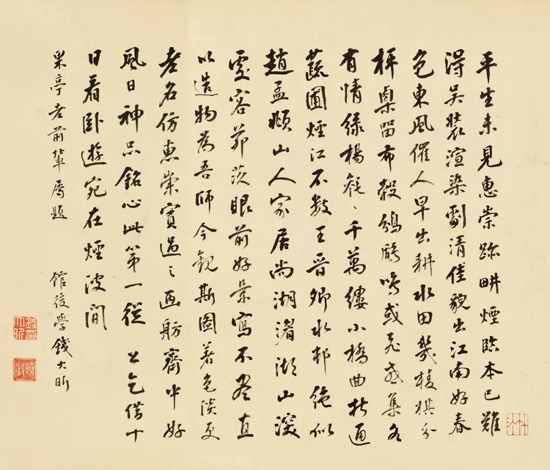 平生未見惠崇跡畊煙臨本已難
得吳裝渲染劇清佳貌出江南好春
色東風催人早出耕水田幾棱棋分
枰栗留布穀鵓鴣鳴或飛或集各
有情綠楊毿〻千萬縷小橋曲折通
蔬圃煙江不數王晉卿水邨絕似
趙孟頫山人家居尚湖渚湖山深
處容茆茨眼前好景寫不盡直
以造物為吾師今觀斯圖著色淡更
老名仿惠崇實過之畫舫齋中好
風日神品銘心此第一從公乞借十
日看臥遊宛在煙波間
果亭老前輩屬題 館後學錢大昕